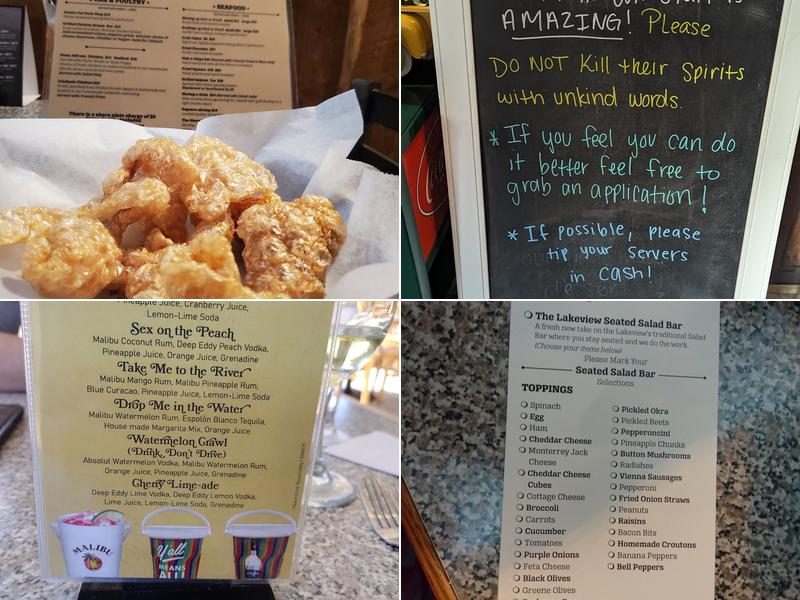 SEAFOOD
There is a share plate charge of $3
AMAZING! Please
DO NOT Kill their Spirits
with unkind words.
* If you feel you can do
it better feel free to
grab an application!
* If possible, please
tip your servers
in cash!
Pineapple Juice, Cranberry Juice,
Lemon-Lime Soda
Sex on the Peach
Malibu Coconut Rum, Deep Eddy Peach Vodka,
Pineapple Juice, Orange Juice, Grenadine
Take Me to the River
Malibu Mango Rum, Malibu Pineapple Rum,
Blue Curacao, Pineapple Juice, Lemon-Lime Soda
Drop Me in the Water
Malibu Watermelon Rum, Espolòn Blanco Tequila,
House made Margarita Mix, Orange Juice
Watermelon Crawl
(Drink, Don't Drive)
Absolut Watermelon Vodka, Malibu Watermelon Rum,
Orange Juice, Pineapple Juice, Grenadine
Cherry Lime-ade
Deep Eddy Lime Vodka, Deep Eddy Lemon Vodka,
Lime Juice, Lemon-Lime Soda, Grenadine
MALIBU
Y'all
MEANS
ALL!
The Lakeview Seated Salad Bar
A fresh new take on the Lakeview's traditional Salad
Bar where you stay seated and we do the work.
(Choose your items below)
Please Mark Your
Seated Salad Bar
Selections
TOPPINGS
Spinach
Egg
Ham
Cheddar Cheese
Monterrey Jack
Cheese
Cheddar Cheese
Cubes
Cottage Cheese
Broccoli
Carrots
Cucumber
Tomatoes
Purple Onions
Feta Cheese
Black Olives
Greene Olives
Pickled Okra
Pickled Beets
Pepperoncini
Pineapple Chunks
Button Mushrooms
Radishes
Vienna Sausages
Pepperoni
Fried Onion Straws
Peanuts
Raisins
Bacon Bits
Homemade Croutons
Banana Peppers
Bell Peppers